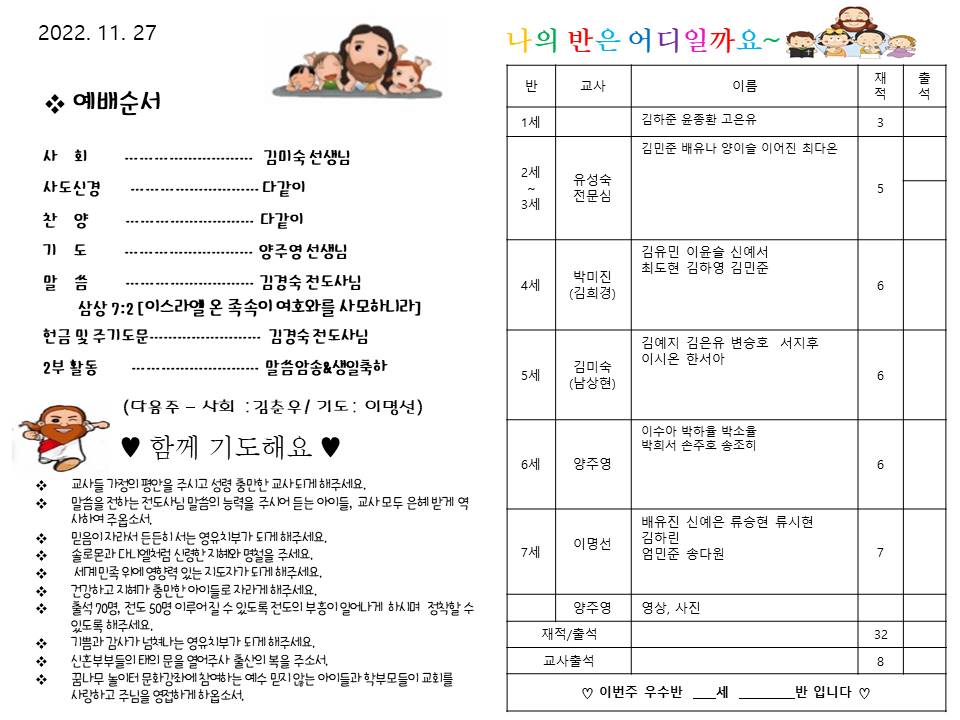 2022. 11. 27
❖ 예배순서
사 회 --------------------------- 김미숙 선생님
사도신경 --------------------------- 다같이
찬 양 --------------------------- 다같이
기 도 --------------------------- 양주영 선생님
말 씀 --------------------------- 김경숙 전도사님
삼상 7:2 [이스라엘 온 족속이 여호와를 사모하니라]
헌금 및 주기도문------------------------ 김경숙 전도사님
2부 활동 --------------------------- 말씀암송&생일축하
(다음주 – 사회 : 김춘우/ 기도: 이명선)
♥ 함께 기도해요 ♥
❖ 교사들 가정의 평안을 주시고 성령 충만한 교사 되게 해주세요.
❖ 말씀을 전하는 전도사님 말씀의 능력을 주시어 듣는 아이들, 교사 모두 은혜 받게 역
사하여 주옵소서.
❖ 믿음이 자라서 든든히 서는 영유치부가 되게 해주세요.
❖ 솔로몬과 다니엘처럼 신령한 지혜와 명철을 주세요.
❖ 세계 민족 위에 영향력 있는 지도자가 되게 해주세요.
❖ 건강하고 지혜가 충만한 아이들로 자라게 해주세요.
❖ 출석 70명, 전도 50명 이루어 질 수 있도록 전도의 부흥이 일어나게 하시며 정착할 수
있도록 해주세요.
❖ 기쁨과 감사가 넘쳐나는 영유치부가 되게 해주세요.
❖ 신혼부부들의 태의 문을 열어주사 출산의 복을 주소서.
❖ 꿈나무 놀이터 문화강좌에 참여하는 예수 믿지 않는 아이들과 학부모들이 교회를
사랑하고 주님을 영접하게 하옵소서.
나의 반은 어디일까요~
반 교사 이름 재적 출석
1세 김하준 윤종환 고은유 3
2세 ~ 3세 유성숙 전문심 김민준 배유나 양이슬 이어진 최다온 5
4세 박미진 (김희경) 김유민 이윤슬 신예서
최도현 김하영 김민준 6
5세 김미숙 (남상현) 김예지 김은유 변승호 서지후
이시온 한서아 6
6세 양주영 이수아 박하율 박소율
박희서 손주호 송조히 6
7세 이명선 배유진 신예은 류승현 류시현
김하린
엄민준 송다원 7
양주영 영상, 사진
재적/출석 32
교사출석 8
♡ 이번주 우수반 ___세 ________반 입니다 ♡